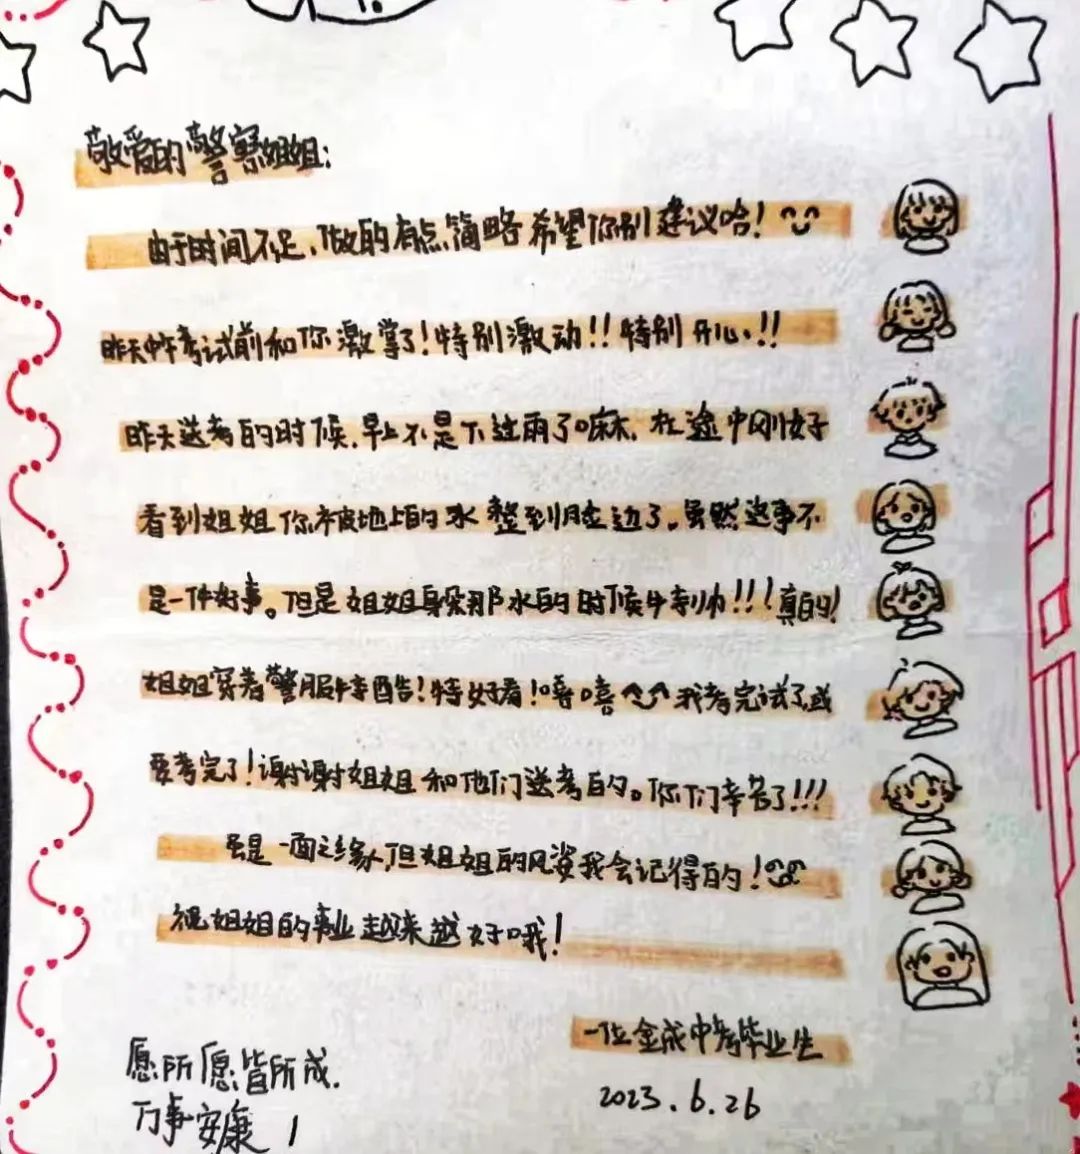 敬爱的警察姐姐：
由于时间不足，做的有点简略希望你别建议哈！
昨天中午考试前和你激掌了！特别激动！！特别开心！！
昨天送考的时候，早上不是下过雨了嘛，在途中刚好
看到姐姐你被地上的水整到腿边了。虽然这事不
是一件好事。但是姐姐身穿那水的时候牛掰帅！！！真的！
姐姐穿着警服特酷！特好看！嘻嘻 我考完试了，或
要考完了！谢谢姐姐和他们送考的。你们辛苦了！！！
虽是一面之缘，但姐姐的风姿我会记得的！
祝姐姐的事业越来越好哦！
一位金成中考毕业生
2023.6.26
愿所愿皆所成．
万事安康！